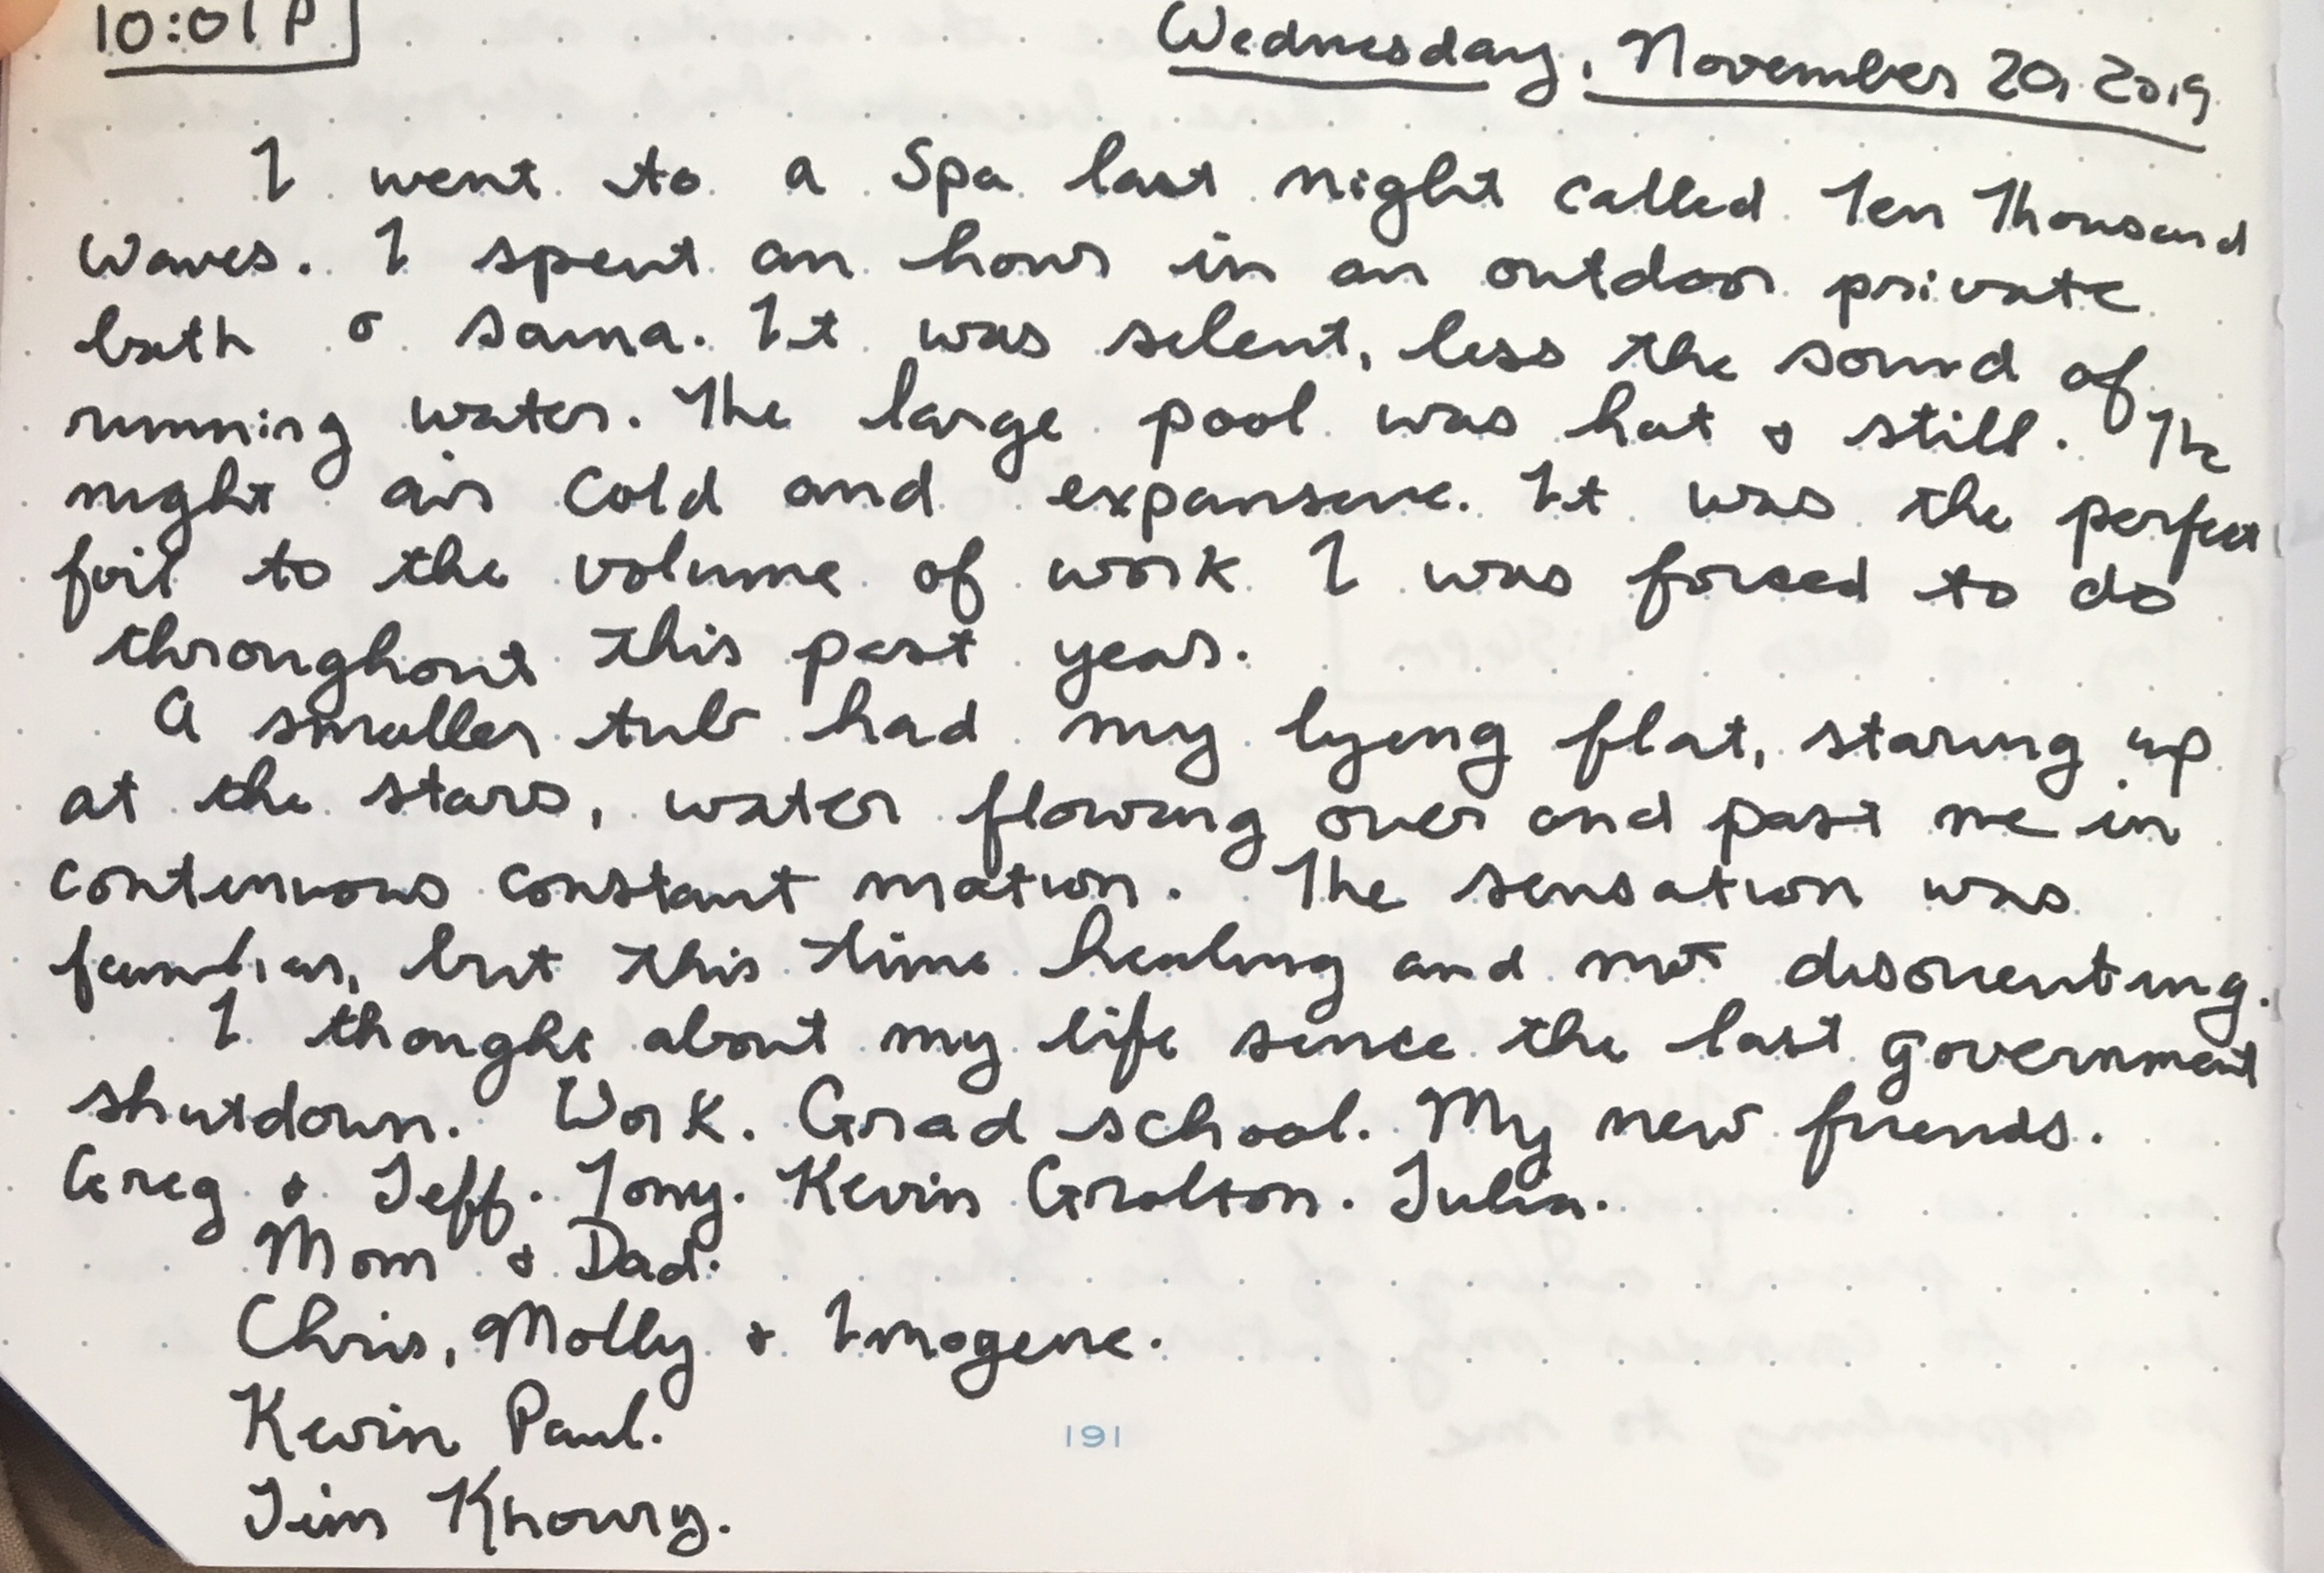 10:01P
Wednesday, November 20, 2019
I went to a Spa last night called Ten Thousand
Waves. I spent an hour in an outdoor private
bath & sauna. It was silent, less the sound of
running water. The large pool was hot & still. The
night air cold and expansive. It was the perfect
foil to the volume of work I was forced to do
throughout this past year.
A smaller tub had my lying flat, staring up
at the stars, water flowing over and past me in
continuous constant motion. The sensation was
familiar, but this time healing and not disorienting.
I thought about my life since the last government
shutdown. Work. Grad school. My new friends.
Greg & Jeff. Tony. Kevin Gralton. Julia.
Mom & Dad.
Chris, Molly & Imogene.
Kevin Paul.
Jim Khoury.
191